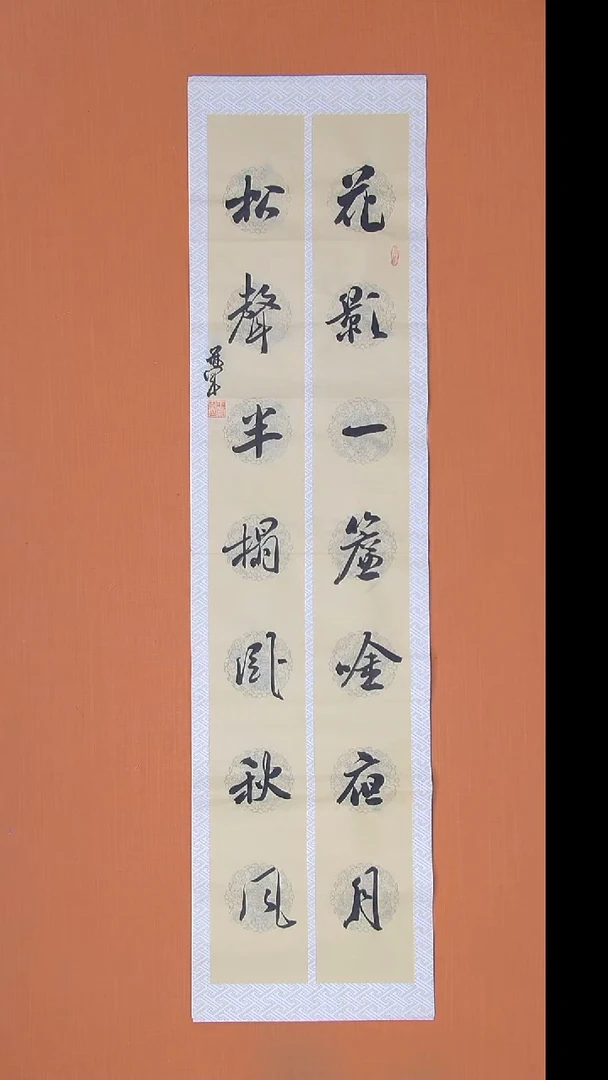 花影一簾唫夜月
松聲半榻卧秋风